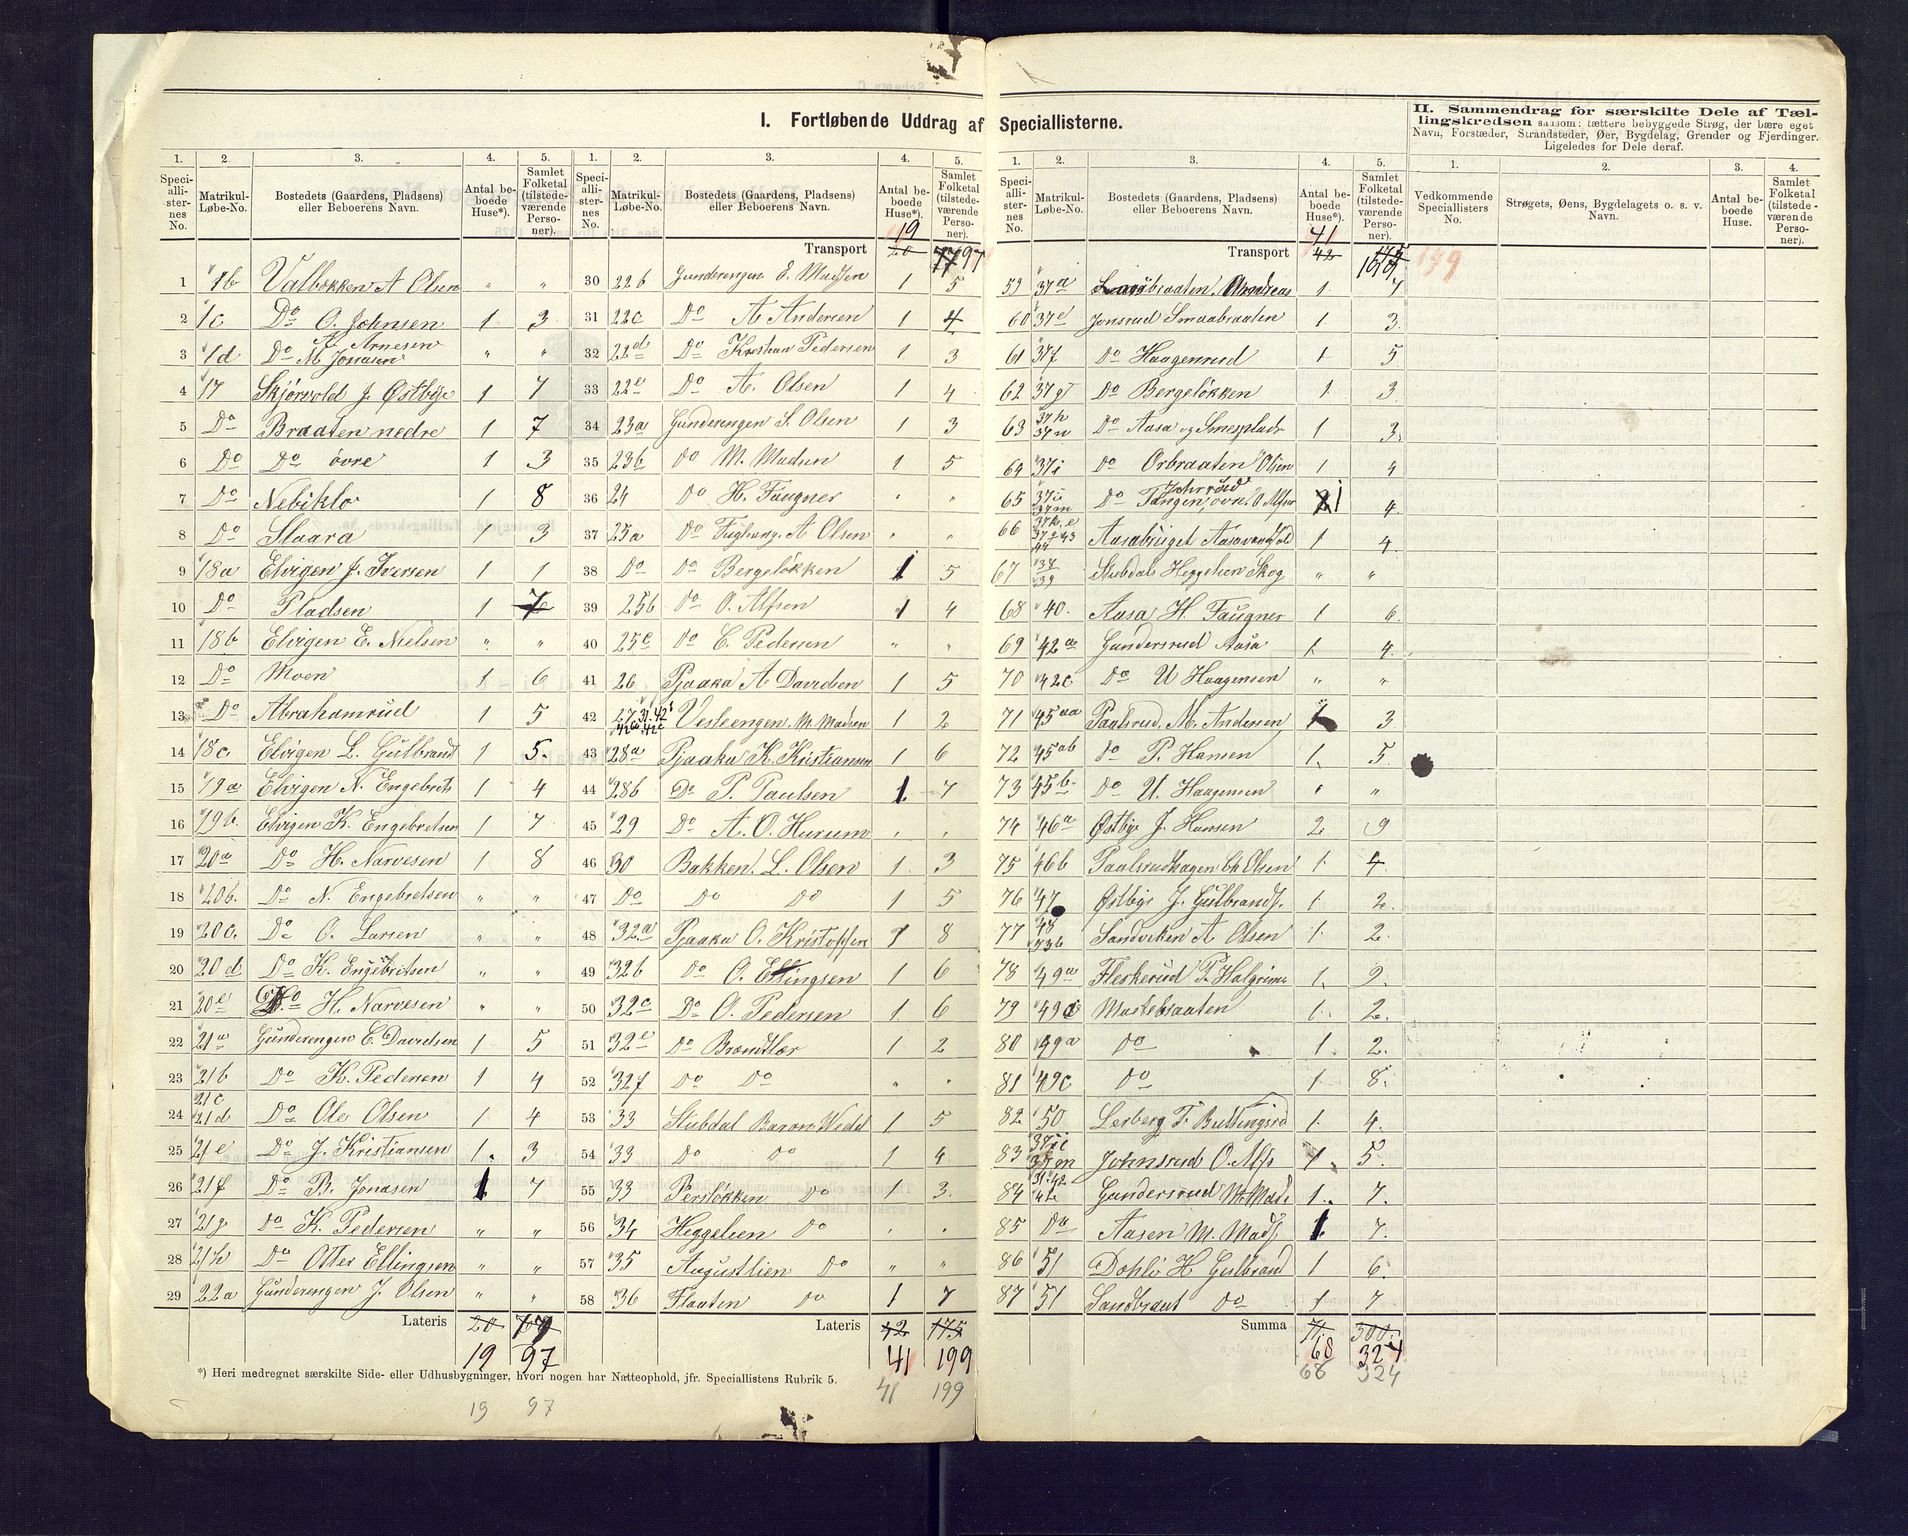 I. Fortløbende Uddrag af Speciallisterne.
II. Sammendrag for særskilte Dele af Tællingskredsen saasom: tættere bebyggede Strøg, der bære eget
Navn, Forstæder, Strandsteder, Øer, Bygdelag, Grender og Fjerdinger.
Ligeledes for Dele deraf.
1. 2. 3. 4. 5.
Speciallisternes No. Matrikul-Løbe-No. Bostedets (Gaardens, Pladsens) eller Beboerens Navn. Antal beboede Huse*). Samlet Folketal (tilstedeværende Personer).
1 1b Valbekken A Olsen " "
2 1c Do O. Johnsen 1 3
3 1d Do A. Arnesen M. Jonsen " "
4 17 Skjørvold J. Østbye 1 7
5 Do Braaten nedre 1 7
6 Do Do øvre 1 3
7 Do Nebiklo 1 8
8 Do Slaara 1 3
9 18a Elvigen J. Iversen 1 1
10 Do Pladsen 1 7
11 18b Elvigen E. Nielsen " "
12 Do Moen 1 6
13 Do Abrahamrud 1 5
14 18c Elvigen L. Gulbrand 1 5.
15 19a Elvigen N. Engebrets 1 4
16 19b. Elvigen K. Engebretsen 1 7
17 20a Do H. Narvesen 1 8
18 20b. Do N. Engebretsen " "
19 20c. Do O. Larsen " "
20 20d Do K. Engebritsen " "
21 20e Do H. Narvesen " "
22 21a Gunderengen E. Davidsen 1 5
23 21b Do K. Pedersen 1 4
24 21c 21d Do Ole Olsen 1 4
25 21e Do J. Kristiansen 1. 3
26 21f Do B. Jonasen 1 7
27 21g Do K. Pedersen " "
28 21h Do Otter Ellingsen " "
29 22a Gunderengen J. Olsen " "
Lateris 20
19 97
*) Heri medregnet særskilte Side- eller Udhusbygninger, hvori nogen har Natteophold, jfr. Speciallistens Rubrik 5.
19 97
1. 2. 3. 4. 5.
Speciallisternes No. Matrikul-Løbe-No. Bostedets (Gaardens, Pladsens) eller Beboerens Navn. Antal beboede Huse*). Samlet Folketal (tilstedeværende Personer).
19
Transport 20 77 97
30 22b Gunderengen E. Madsen 1 5
31 22c Do A Andersen 1 4
32 22d Do Kristian Pedersen 1 3
33 22e Do A. Olsen 1 4
34 23a Gunderengen S. Olsen 1 3
35 23b do M. Madsen 1 5
36 24 Do H. Faugner " "
37 25a Do A Olsen " "
38 Do Do Bergeløkken 1 5
39 25b Do O. Alfsen 1 4
40 25c Do C. Pedersen " "
41 26 Pjaaka A Davidsen 1 5
42 27 31. 42 42b 42c Vesleengen M. Madsen 1 2
43 28a Pjaaka K. Kristiansen 1 6
44 28b Do P. Paulsen 1. 7
45 29 Do A. O. Hurum " "
46 30 Bakken. L. Olsen 1 3
47 Do Do Do 1 5
48 32.a Pjaaka O. Kristoffen 1 8
49 32b Do O. Ellingsen 1 6
50 32c Do O. Pedersen 1 6
51 32e Do Bromtkær 1 2
52 32f Do Do " "
53 33 Stubdal Baron Wedel 1 5
54 33 Do Do 1 4
55 33 Persløkken Do 1 3.
56 34 Heggelien Do " "
57 35 Augustlien Do " "
58 36 Flaaten Do 1 7
Lateris 42 175
41 199
41 199
1. 2. 3. 4. 5.
Speciallisternes No. Matrikul-Løbe-No. Bostedets (Gaardens, Pladsens) eller Beboerens Navn. Antal beboede Huse*). Samlet Folketal (tilstedeværende Personer).
41
Transport 42 175 199
199
59 37a Andreas 1 7
60 37e Jonsrud Smaabraaten 1 3.
61 37f Do Haagenrud 1 5
62 37g Do Bergeløkken 1 3.
63 37h 37n Do Aasa og Smedplads 1 3.
64 37i Do Orbraaten Olsen 1 4
65 37ii 37m Do Tangen øvre O Alfsen 1 4.
66 44 Aasabruget 1 4.
67 38 39 Stubdals Heggelien Skog " "
68 40. Aasa H. Faugner 1 6.
69 42a Gundersrud Aasa 1. 4.
70 42c Do U Haagensen " "
71 45aa Paalsrud M. Andersen 1 3
72 45ab Do P. Hansen 1. 5.
73 45b Do U. Haagensen " "
74 46a Østbye J. Hansen 2 9
75 46b Paalsrudhagen Ch Olsen 1. 4.
76 47 Østbye J. Gulbrands. 1. 2.
77 48 73b Sandviken A Olsen 1. 2.
78 49a Fleskerud P. Halgrims 1. 2.
79 49c Mastebraaten 1. 2.
80 49a Do 1 2.
81 49c Do 1 8.
82 50 Lerberg F. Buttingsrud 1. 4.
83 37ii 37m Johnsrud O. Alfs 1. 5.
84 31. 42 42 Gundersrud M. Mads 1. 7.
85 Do Aasen M. Mads. 1. 7.
86 51 Dohlø H Gulbrand 1 6.
87 51 Sandbraat Do 1 7
Summa 71. 300.
68 324
68 324
1. 2. 3. 4.
Vedkommende Speciallisters No. Strøgets, Øens, Bygdelagets o. s. v. Navn. Antal beboede Huse. Samlet Folketal (tilstedeværende Personer).